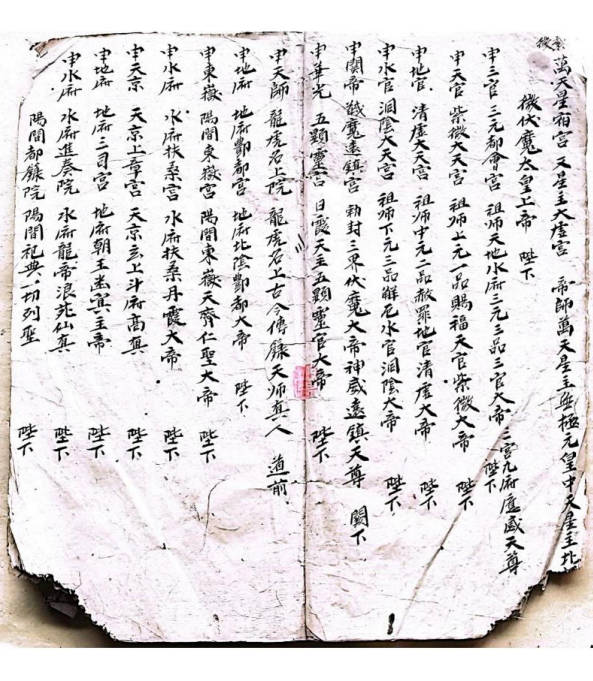 萬天星宿宮 天星主大虛宮 帝師萬天星主無極元皇中天星主北
紫微
微伏魔大皇上帝 陛下
申三官 三元都會宮 祖師天地水府三元三品三官大帝 三宮九府應感天尊 陛下
申天官 紫微大天宮 祖師上元一品賜福天官紫微大帝 陛下
申地官 清虛大天宮 祖師中元二品赦罪地官清虛大帝 陛下
申水官 洞陰大天宮 祖師下元三品解厄水官洞陰大帝 陛下
申關帝 馘魔遠鎮宮 勅封三界伏魔大帝神威遠鎮天尊 闕下
申華光 五顯靈宮 日霞天主五顯靈官大帝 陛下
申天師 龍虎名上院 龍虎名上古今傳籙天師真人 道前
申地府 地府酆都宮 地府北陰酆都大帝 陛下
申東嶽 陽間東嶽宮 陽間東嶽天齊仁聖大帝 陛下
申水府 水府扶桑宮 水府扶桑丹霞大帝 陛下
申天京 天京上章宮 天京玄上斗府高真 陛下
申地府 地府三司宮 地府朝王玄冥主帝 陛下
申水府 水府進奏院 水府龍帝浪苑仙真 陛下
陽間都錄院 陽間祀典一切列聖 陛下